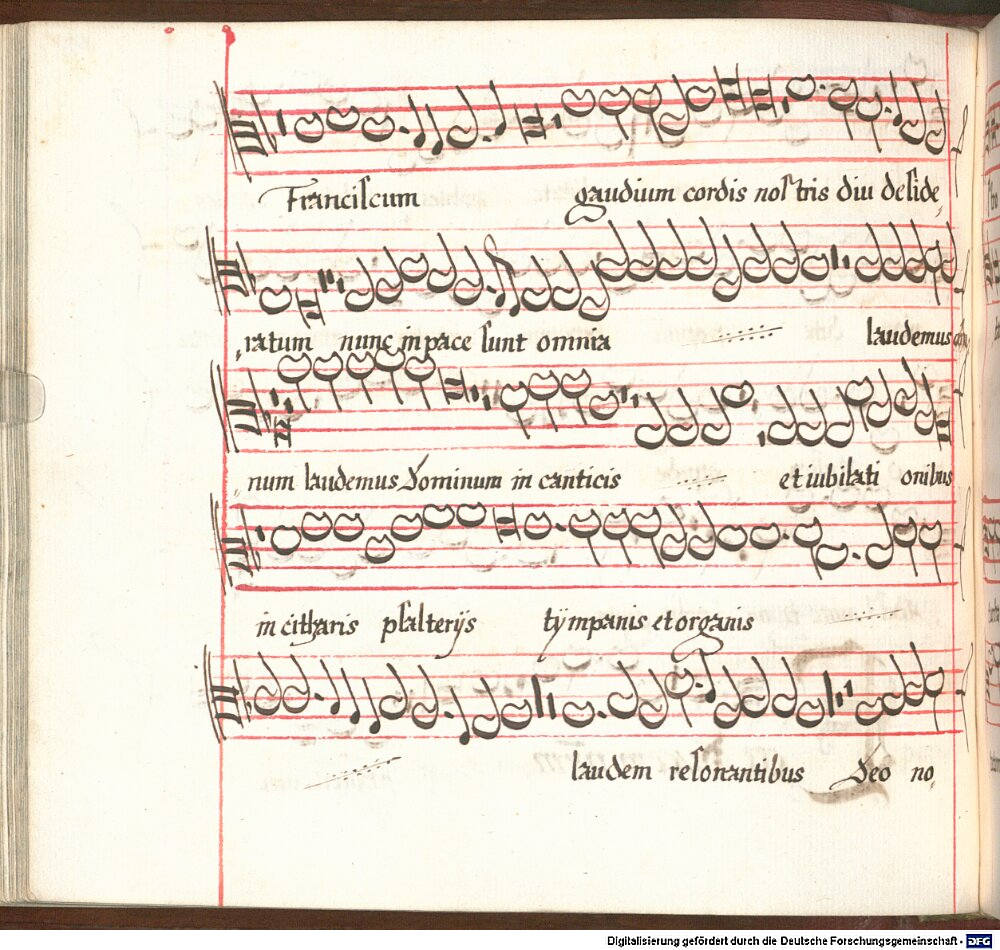 Franciſcum gaudium cordis noſtris diu deſide,
,ratum nunc in pace ſunt omnia laudemus
num laudemus Dominum in canticis et iubilati onibus
in citharis pſalterijs tÿmpanis et organis
laudem reſonantibus Deo no,
Digitalisierung gefördert durch die Deutsche Forschungsgemeinschaft - DFG